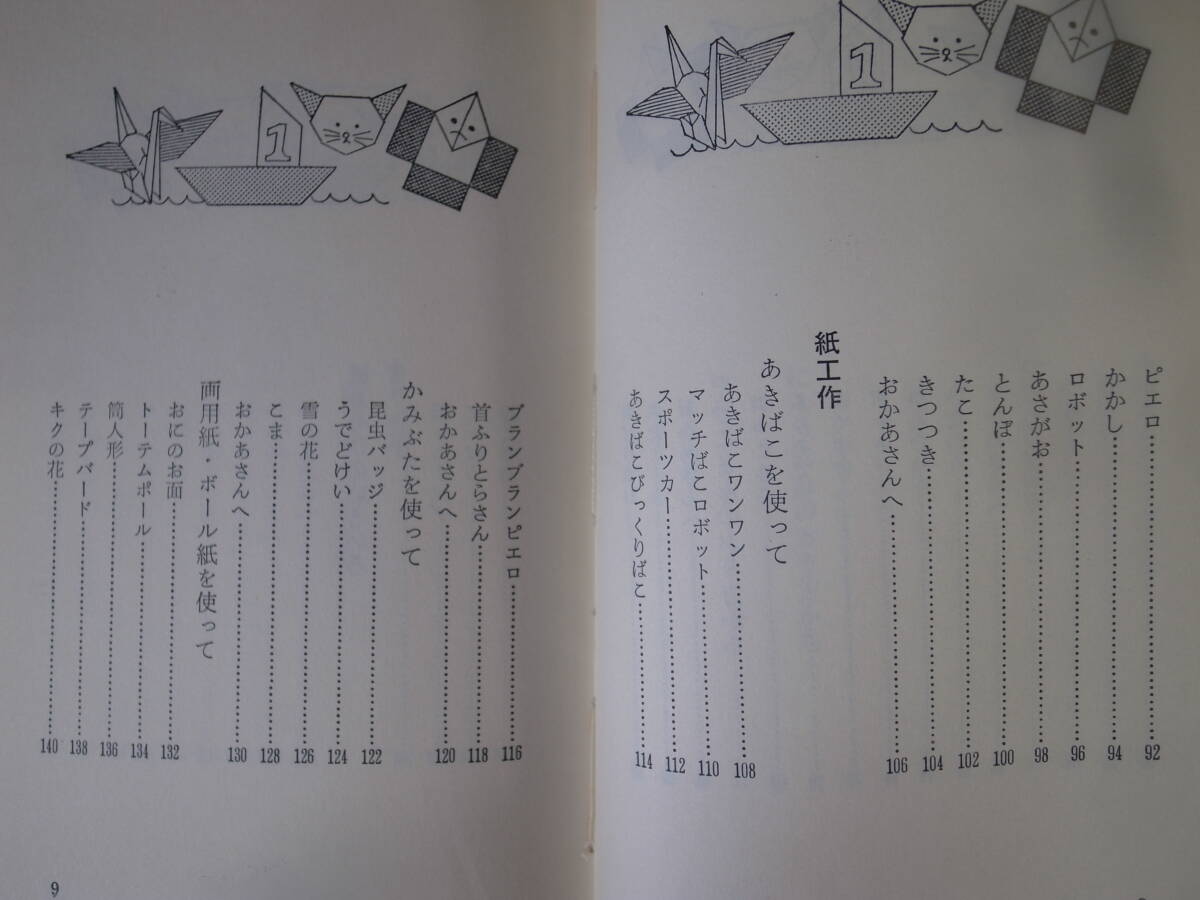 1
ピエロ……92
かかし……94
ロボット……96
あさがお……98
とんぼ……100
たこ……102
きつつき……104
おかあさんへ……106
紙工作
あきばこを使って
あきばこワンワン……108
マッチばこロボット……110
スポーツカー……112
あきばこびっくりばこ……114
1
ブランブランピエロ……116
首ふりとらさん……118
おかあさんへ……120
かみぶたを使って
昆虫バッジ……122
うでどけい……124
雪の花……126
こま……128
おかあさんへ……130
両用紙・ボール紙を使って
おにのお面……132
トーテムポール……134
筒人形……136
テープバード……138
キクの花……140
9